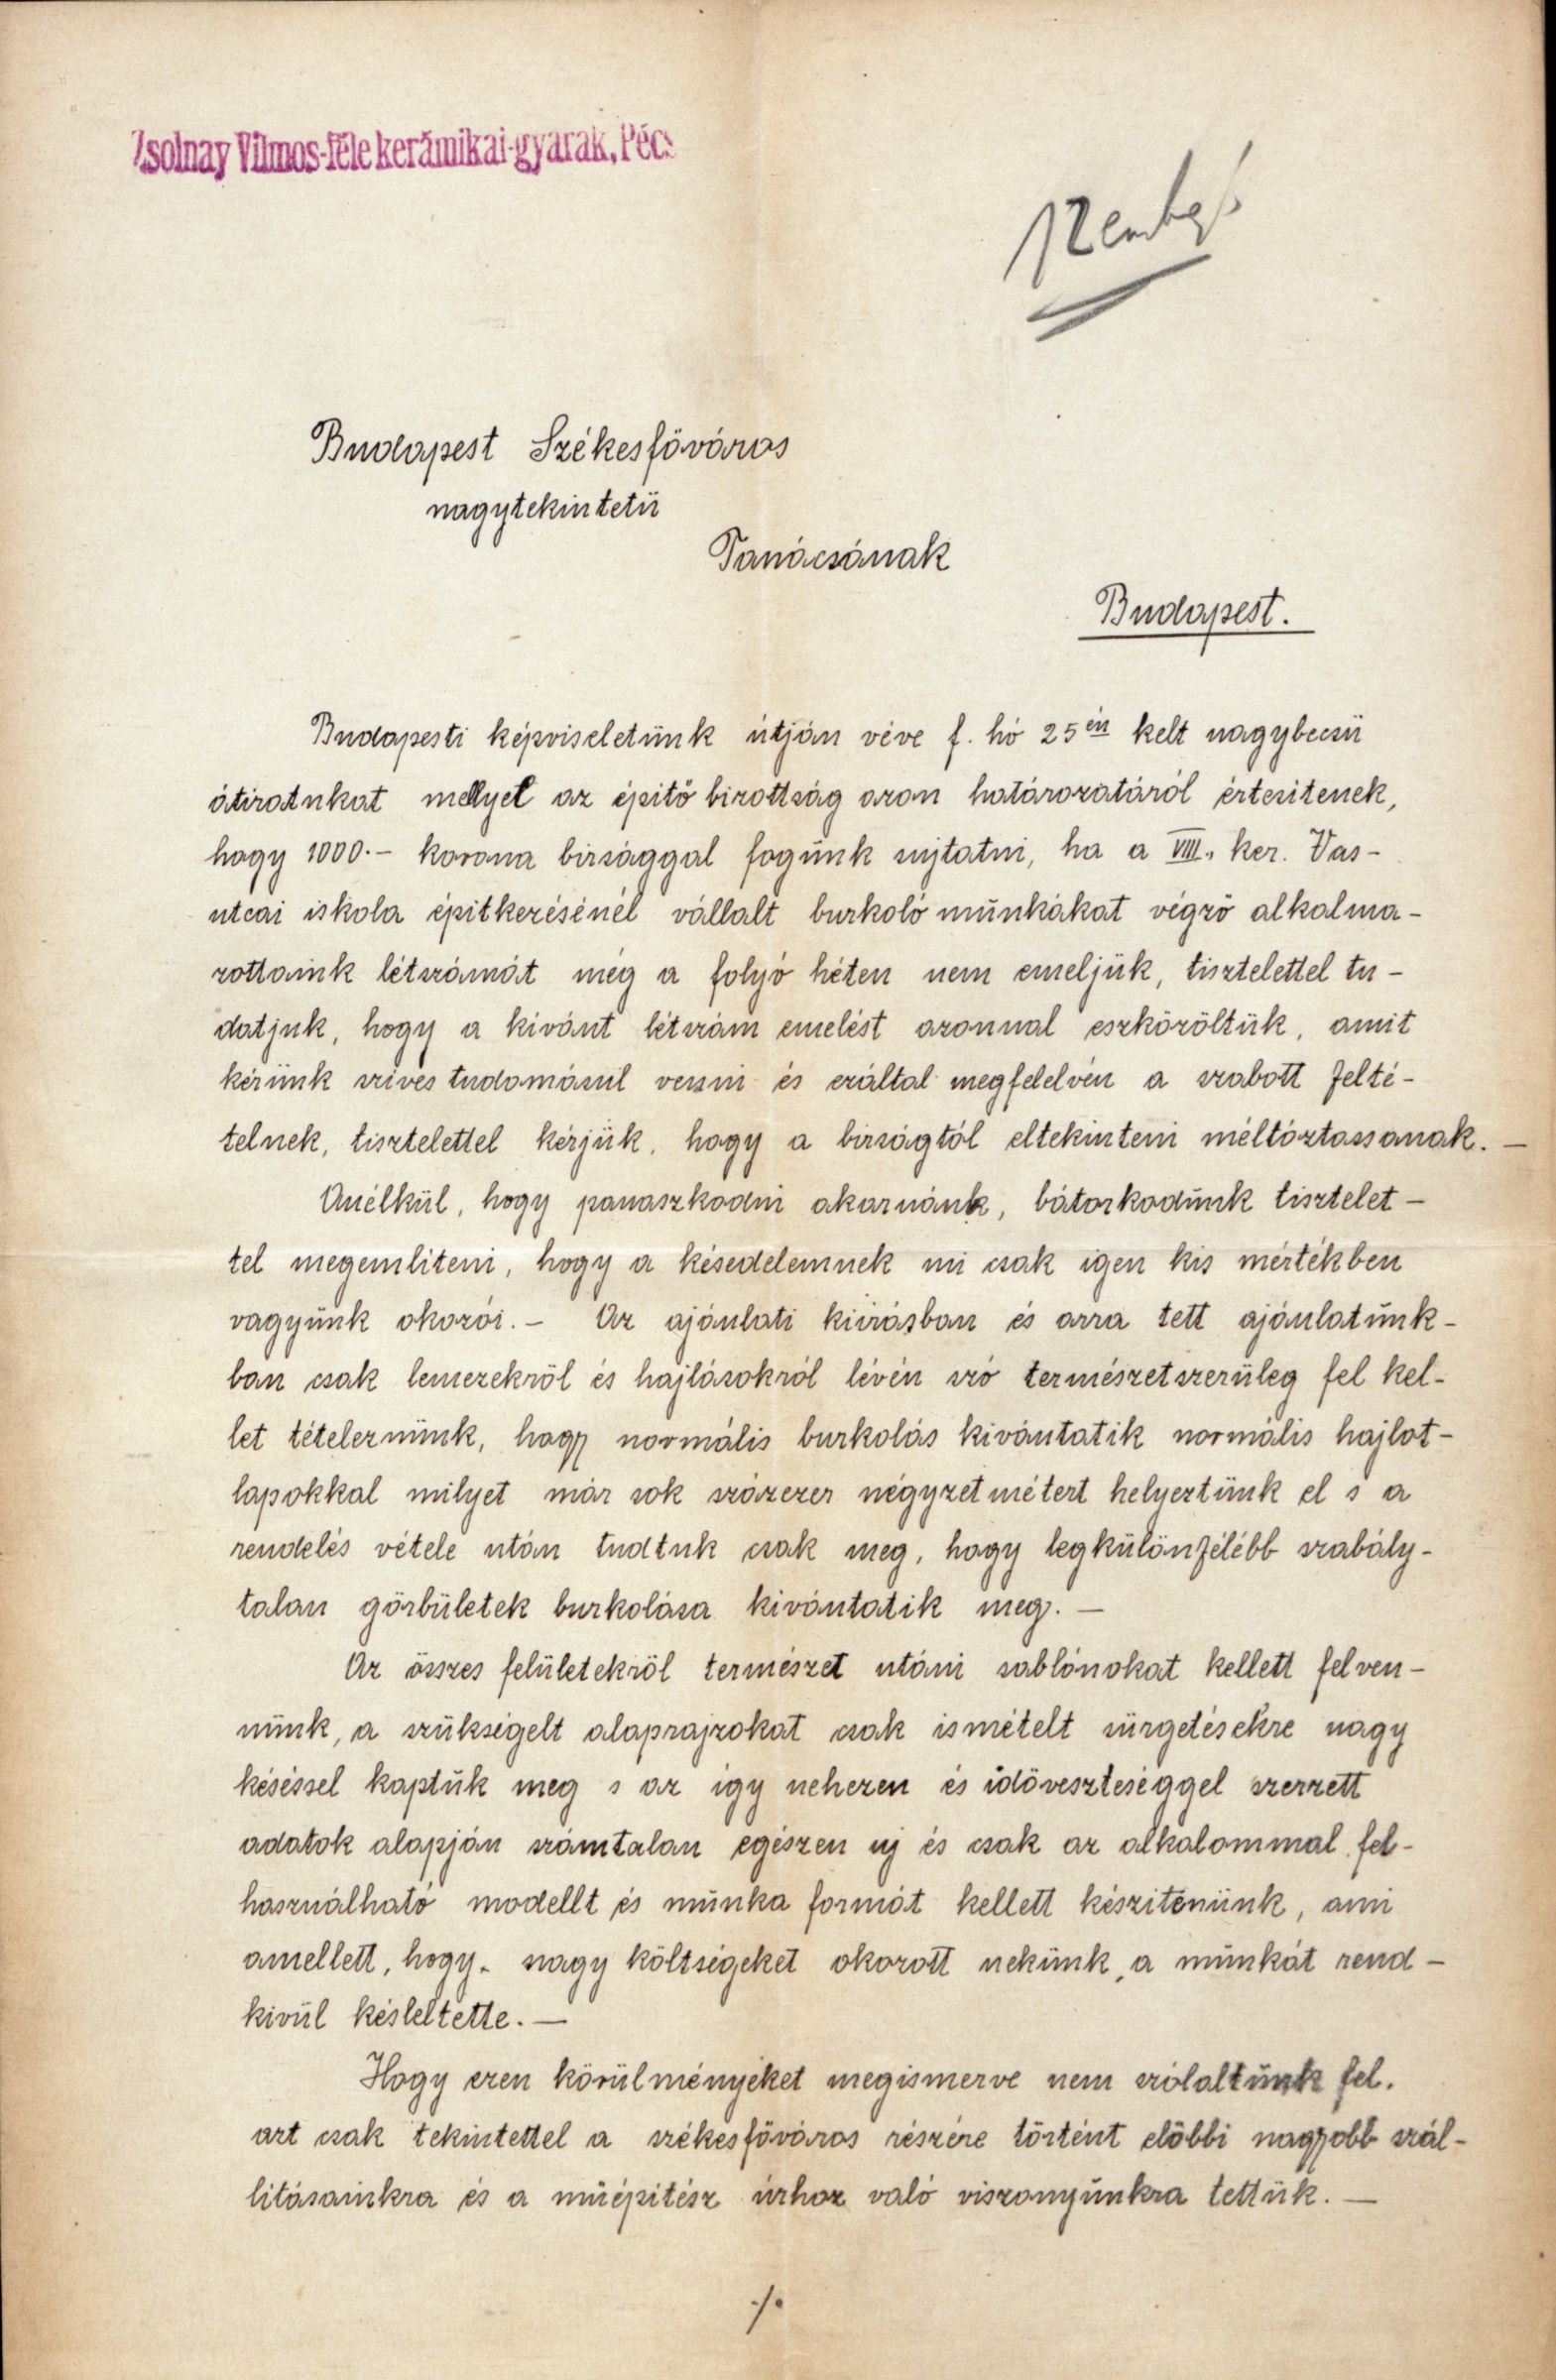 Zsolnay Vilmos-féle kerámikai-gyárak, Pécs
Budapest Székesfőváros
nagytekintetü
Tanácsának
Budapest.
Budapesti képviseletünk útján véve f. hó 25én kelt nagybecsü
átiratukat mellyel az építő bizottság azon határozatáról értesitenek,
hogy 1000.- korona birsággal fogunk sujtatni, ha a VIII. ker. Vas-
utcai iskola épitkezésénél vállalt burkoló munkákat végző alkalma-
zottaink létszámát még a folyó héten nem emeljük, tisztelettel tu-
datjuk, hogy a kivánt létszám emelést azonnal eszközöltük, amit
kérünk szives tudomásul venni és ezáltal megfelelvén a szabott felté-
telnek, tisztelettel kérjük, hogy a birságtól eltekinteni méltóztassanak. -
Anélkül, hogy panaszkodni akarnánk, bátorkodunk tisztelet-
tel megemliteni, hogy a késedelemnek mi csak igen kis mértékben
vagyunk okozói. - Az ajánlati kiirásban és arra tett ajánlatunk-
ban csak lemezekről és hajlásokról lévén szó természetszerüleg fel kel-
let tételeznünk, hogy normális burkolás kivántatik normális hajlat-
lapokkal milyet már sok százezer négyzetmétert helyeztünk el s a
rendelés vétele után tudtuk csak meg, hogy legkülönfélébb szabály-
talan görbületek burkolása kivántatik meg. -
Az összes felületekről természet utáni sablónokat kellett felven-
nünk, a szükségelt alaprajzokat csak ismételt sürgetésekre nagy
késéssel kaptuk meg s az igy nehezen és időveszteséggel szerzett
adatok alapján számtalan egészen uj és csak az alkalommal fel-
használható modellt és munka formát kellett készitenünk, ami
amellett, hogy nagy költségeket okozott nekünk, a munkát rend-
kivül késleltette. -
Hogy ezen körülményeket megismerve nem szólaltunk fel.
azt csak tekintettel a székesfőváros részére történt előbbi nagyobb szál-
litásainkra és a müépitész úrhoz való viszonyunkra tettük. -
./.